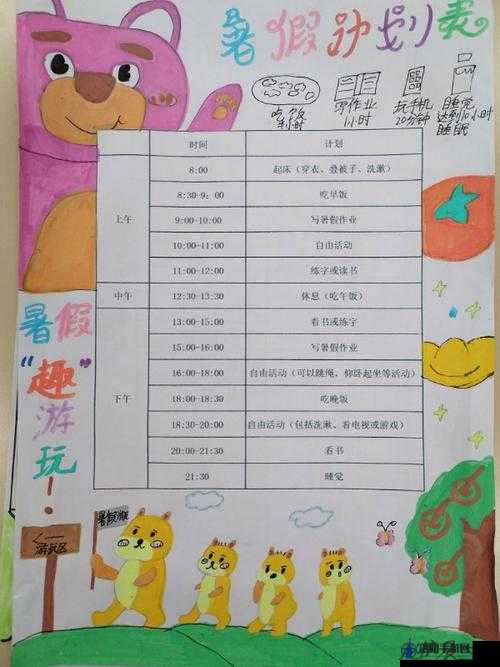 暑假计划表
吃饭
半小时
写作业
1小时
玩手机
20分钟
睡觉
达到10小时
睡眠
时间 计划
上午
8:00 起床（穿衣、叠被子、洗漱）
8:30-9：00 吃早饭
9:00-10:00 写暑假作业
10:00-11:00 自由活动
11:00-12:00 练字或读书
中午 12:30-13:30 休息（吃午饭）
下午
13:00-15:00 看书或练字
15:00-16:00 写暑假作业
16:00-18:00 自由活动（可以跳绳，仰卧起坐等活动）
18:00-18:30 吃晚饭
18:30-20:00 自由活动（包括洗漱、看电视或游戏）
20:00-21:30 看书
21:30 睡觉
暑假
“趣”
游
玩
！
游玩区